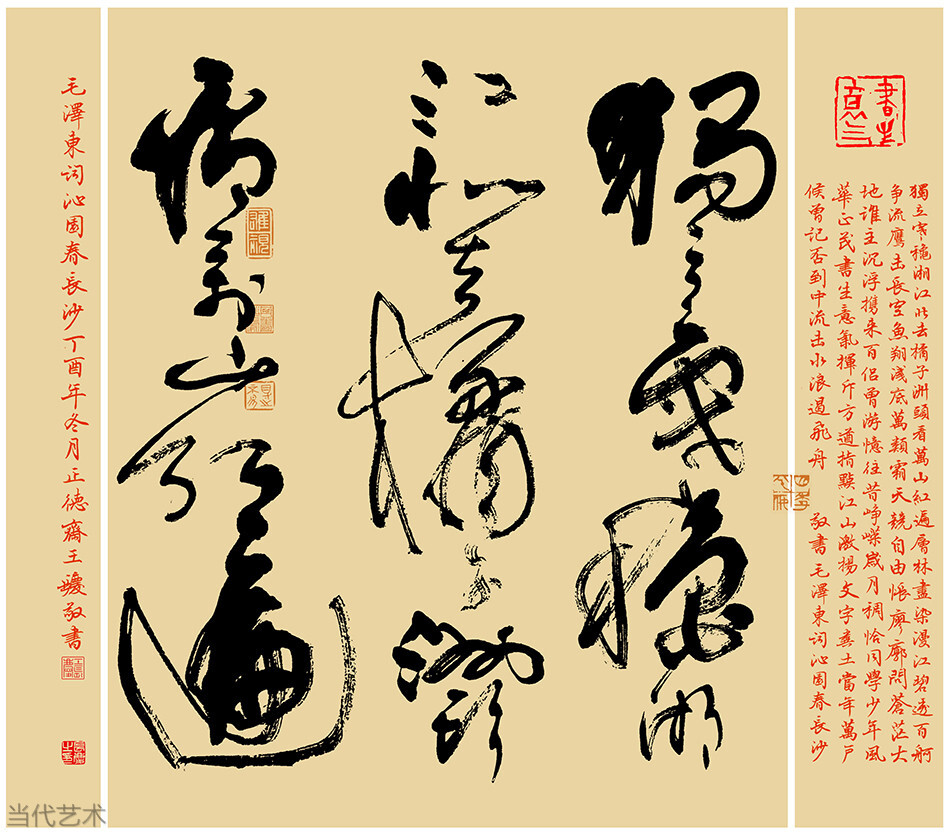 書生意气
獨立寒穐湘江北去橘子洲頭看萬山紅遍層林盡染漫江碧透百舸
争流鷹击長空魚翔浅底萬類霜天競自由悵廖廓問蒼茫大
地誰主沉浮携来百侣曾游憶往昔崢嶸歲月稠恰同學少年風
華正茂書生意氣揮斥方遒指點江山激揚文字糞土當年萬户
候曾記否到中流击水浪遏飛舟 敬書毛澤東词沁园春長沙
獨立寒穐湘
江北去橘子洲頭
看萬山紅遍
毛澤東词沁園春長沙丁酉年冬月正德齋王瓊敬書
当代艺术